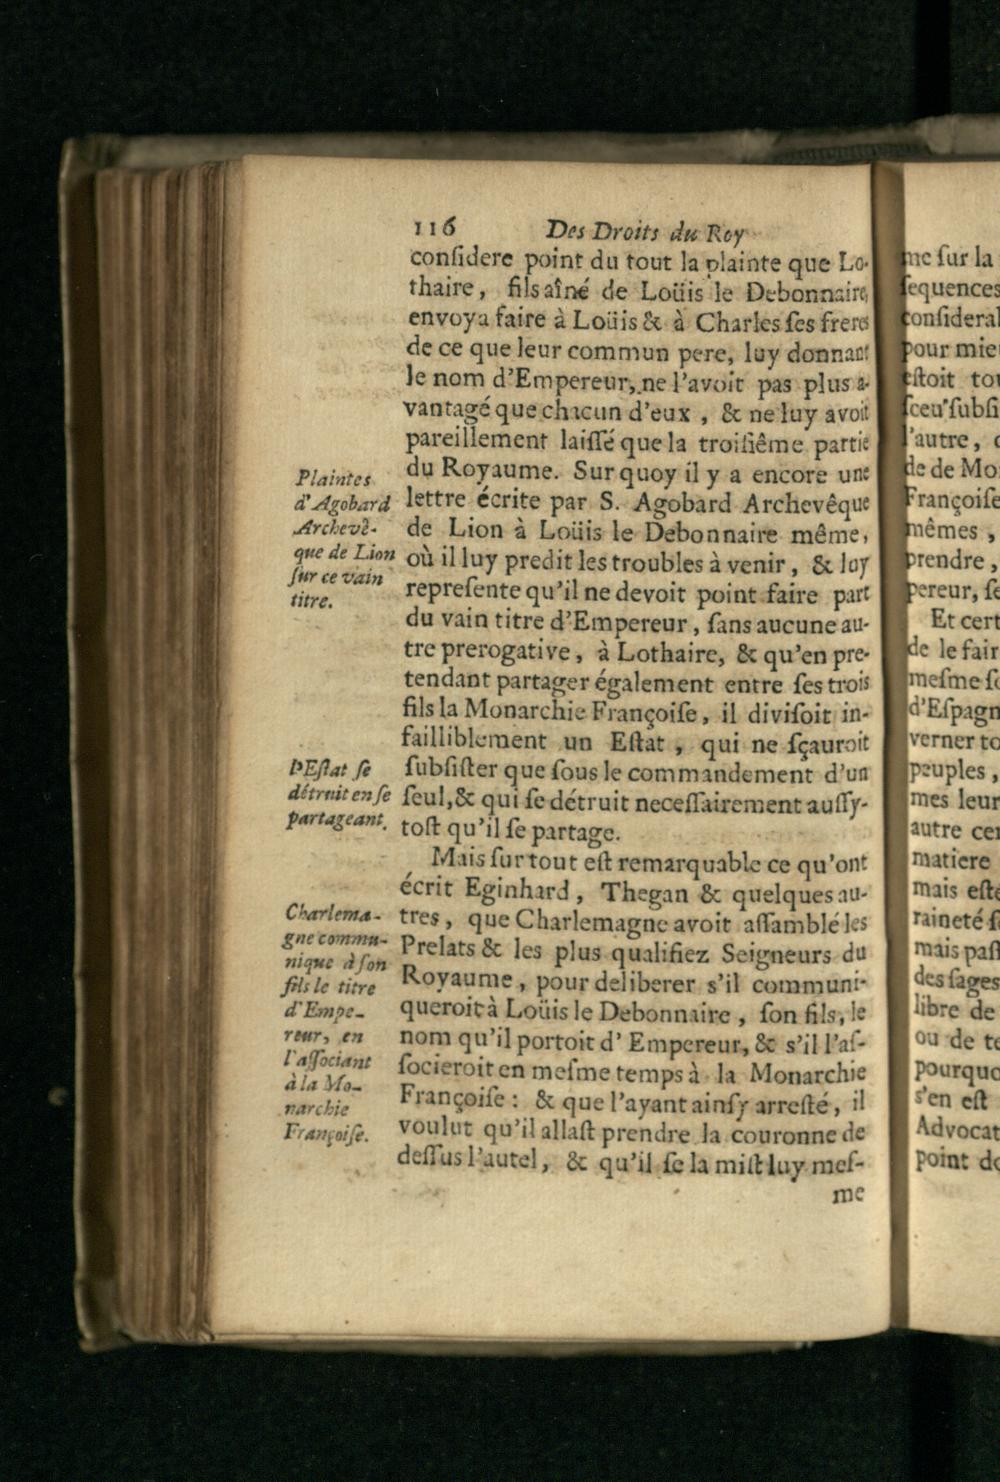 116 Des Droits du Roy
conſidere point du tout la plainte que Lo-
thaire, fils aîné de Loüis le Debonnaire,
envoya faire à Loüis & à Charles ſes freres
de ce que leur commun pere, luy donnant
le nom d'Empereur, ne l'avoit pas plus a-
vantagé que chacun d'eux, & ne luy avoit
pareillement laiſſé que la troiſiême partie
du Royaume. Sur quoy il y a encore une
lettre écrite par S. Agobard Archevêque
de Lion à Loüis le Debonnaire même,
où il luy predit les troubles à venir, & luy
repreſente qu'il ne devoit point faire part
du vain titre d'Empereur, ſans aucune au-
tre prerogative, à Lothaire, & qu'en pre-
tendant partager également entre ſes trois
fils la Monarchie Françoiſe, il diviſoit in-
failliblement un Eſtat, qui ne ſçauroit
ſubſiſter que ſous le commandement d'un
ſeul, & qui ſe détruit neceſſairement auſſy-
toſt qu'il ſe partage.
Mais ſur tout eſt remarquable ce qu'ont
écrit Eginhard, Thegan & quelques au-
tres, que Charlemagne avoit aſſamblé les
Prelats & les plus qualifiez Seigneurs du
Royaume, pour deliberer s'il communi-
queroit à Loüis le Debonnaire, ſon fils, le
nom qu'il portoit d'Empereur, & s'il l'aſ-
ſocieroit en meſme temps à la Monarchie
Françoiſe : & que l'ayant ainſy arreſté, il
voulut qu'il allaſt prendre la couronne de
deſſus l'autel, & qu'il ſe la miſt luy meſ-
me
Plaintes
d'Agobard
Archevê-
que de Lion
ſur ce vain
titre.
l'Eſtat ſe
détruit en ſe
partageant.
Charlema-
gne commu-
nique à ſon
fils le titre
d'Empe-
reur, en
l'aſſociant
à la Mo-
narchie
Françoiſe.
me ſur la
ſequences
conſideral
pour mie
eſtoit tou
ſceu ſubſi
l'autre,
de de Mo
Françoiſe
mêmes,
prendre,
pereur, ſe
Et cert
de le fair
meſme ſo
d'Eſpagn
verner to
peuples,
mes leur
autre cer
matiere
mais eſté
raineté ſ
mais paſſ
des ſages
libre de
ou de te
pourquo
s'en eſt
Advocat
point do